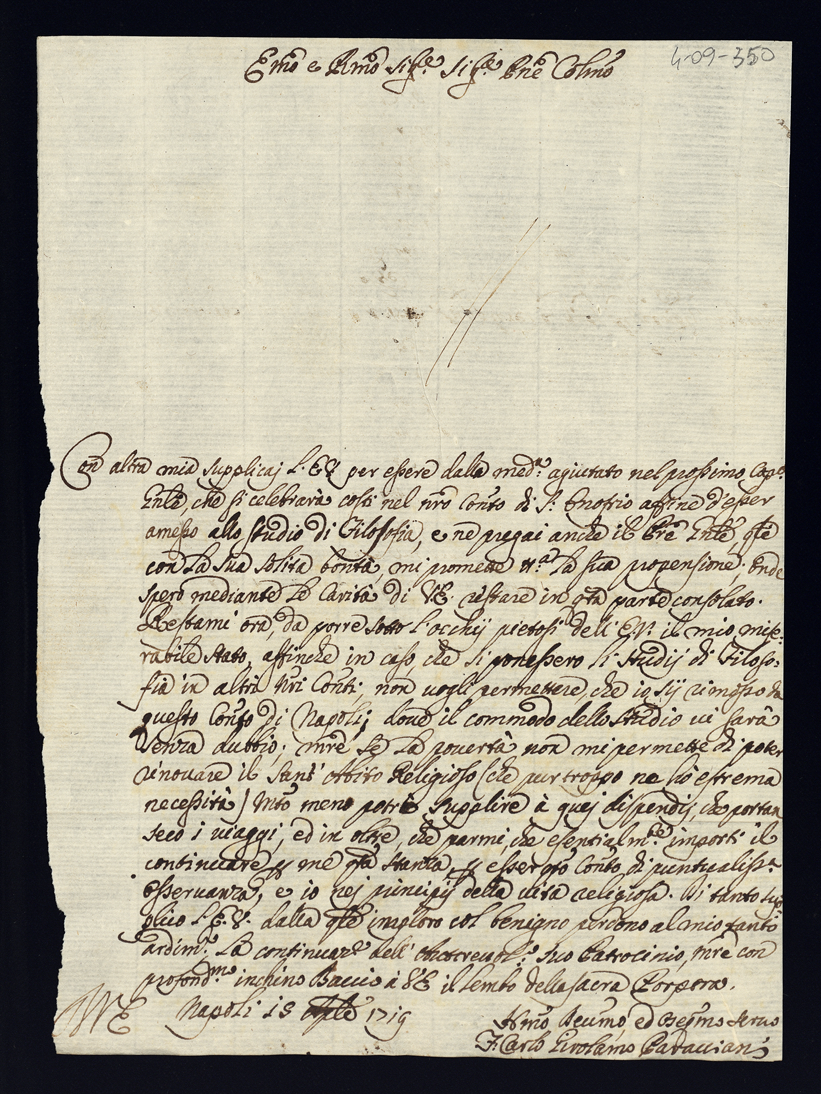 4-09-350
Emo e Rmo Sig.re Sig.re Pne Colmo
Con altra mia supplicaj l'E.V. per essere dalla med.a agiutato nel prossimo Cap.o
Gnlē, che si celebrarà costì nel nrō Conto di S. Onofrio affine d'esser
amesso allo studio di Filosofia, e ne pregai anche il Pre Gnlē, qle
con la sua solita bontà, mi promette la sua propensione; onde
spero mediante la Carità di V.E. restare in qta parte consolato.
Restami ora, da porre sotto l'occhij pietosi dell'E.V. il mio mise-
rabile stato, affinche in caso, che si ponessero li studij di Filoso-
fia in altri nri Conti, non vogli permettere, che io sij rimosso da
questo Conto di Napoli, dove il commodo dello studio vi sarà
senza dubbio; mtre se la povertà non mi permette di poter
rinovare il Abito Religioso (che pur troppo ne hò estrema
necessità) mto meno potrò supplire à quej dispendij, che portan
seco i viaggi, ed in oltre, che parmi, che esentialm.te importi il
continuare p me qta stanza, p esser qto Conto di puntualiss.a
osservanza, e io nej principij della vita religiosa. Di tanto sup-
plico l'E.V. dalla qle imploro col benigno perdono al mio tanto
ardim.o la continuaz.e dell' suo Patrocinio, mtre con
profond.mo inchino Baccio à V.E. il lembo della sacra Porpora.
D.V.E. Napoli 18 1719
Hmo Devmo, ed Obbmo Servo
F. Carlo Girolamo